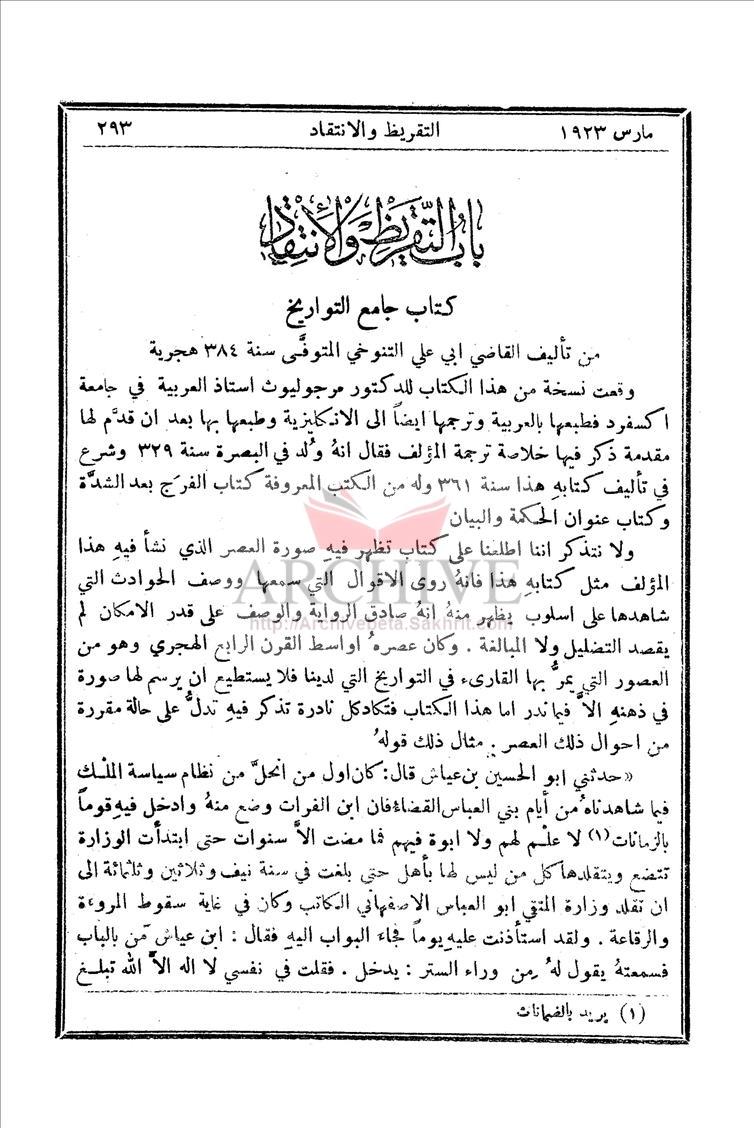 مارس ١٩٢٣ التقريظ والانتقاد ٢٩٣
باب التقريظ والانتقاد
كتاب جامع التواريخ
من تأليف القاضي ابي علي التنوخي المتوفَّى سنة ٣٨٤ هجرية
وقعت نسخة من هذا الكتاب للدكتور مرجوليوث استاذ العربية في جامعة
اكسفرد فطبعها بالعربية وترجمها ايضاً الى الانكليزية وطبعها بها بعد ان قدَّم لها
مقدمة ذكر فيها خلاصة ترجمة المؤلف فقال انهُ وُلد في البصرة سنة ٣٢٩ وشرع
في تأليف كتابهِ هذا سنة ٣٦١ وله من الكتب المعروفة كتاب الفرَج بعد الشدَّة
وكتاب عنوان الحكمة والبيان
ولا نتذكر اننا اطلعنا على كتاب تظهر فيهِ صورة العصر الذي نشأ فيهِ هذا
المؤلف مثل كتابهِ هذا فانهُ روى الاقوال التي سمعها ووصف الحوادث التي
شاهدها على اسلوب يظهر منهُ انهُ صادق الرواية والوصف على قدر الامكان لم
يقصد التضليل ولا المبالغة . وكان عصرهُ اواسط القرن الرابع الهجري وهو من
العصور التي يمرُّ بها القارىء في التواريخ التي لدينا فلا يستطيع ان يرسم لها صورة
في ذهنهِ الاَّ فيما ندر اما هذا الكتاب فتكاد كل نادرة تذكر فيهِ تدلُّ على حالة مقررة
من احوال ذلك العصر . مثال ذلك قولهُ
«حدثني ابو الحسين بن عياش قال: كان اول من انحلَّ من نظام سياسة الملك
فيما شاهدناهُ من أيام بني العباس القضاء فان ابن الفرات وضع منهُ وادخل فيهِ قوماً
بالزمانات(١) لا علم لهم ولا ابوة فيهم فما مضت الاَّ سنوات حتى ابتدأت الوزارة
تتضع ويتقلدها كل من ليس لها بأهل حتى بلغت في سنة نيف وثلاثين وثلثمائة الى
ان تقلد وزارة المتقي ابو العباس الاصفهاني الكاتب وكان في غاية سقوط المروءة
والرقاعة . ولقد استأذنت عليهِ يوماً فجاء البواب اليهِ فقال : ابن عياش مَن بالباب
فسمعتهُ يقول لهُ مِن وراء الستر : يدخل . فقلت في نفسي لا اله الاَّ الله تبلغ
(١) يريد بالضمانات
ARCHIVE
http://Archivebeta.Sakhrit.com